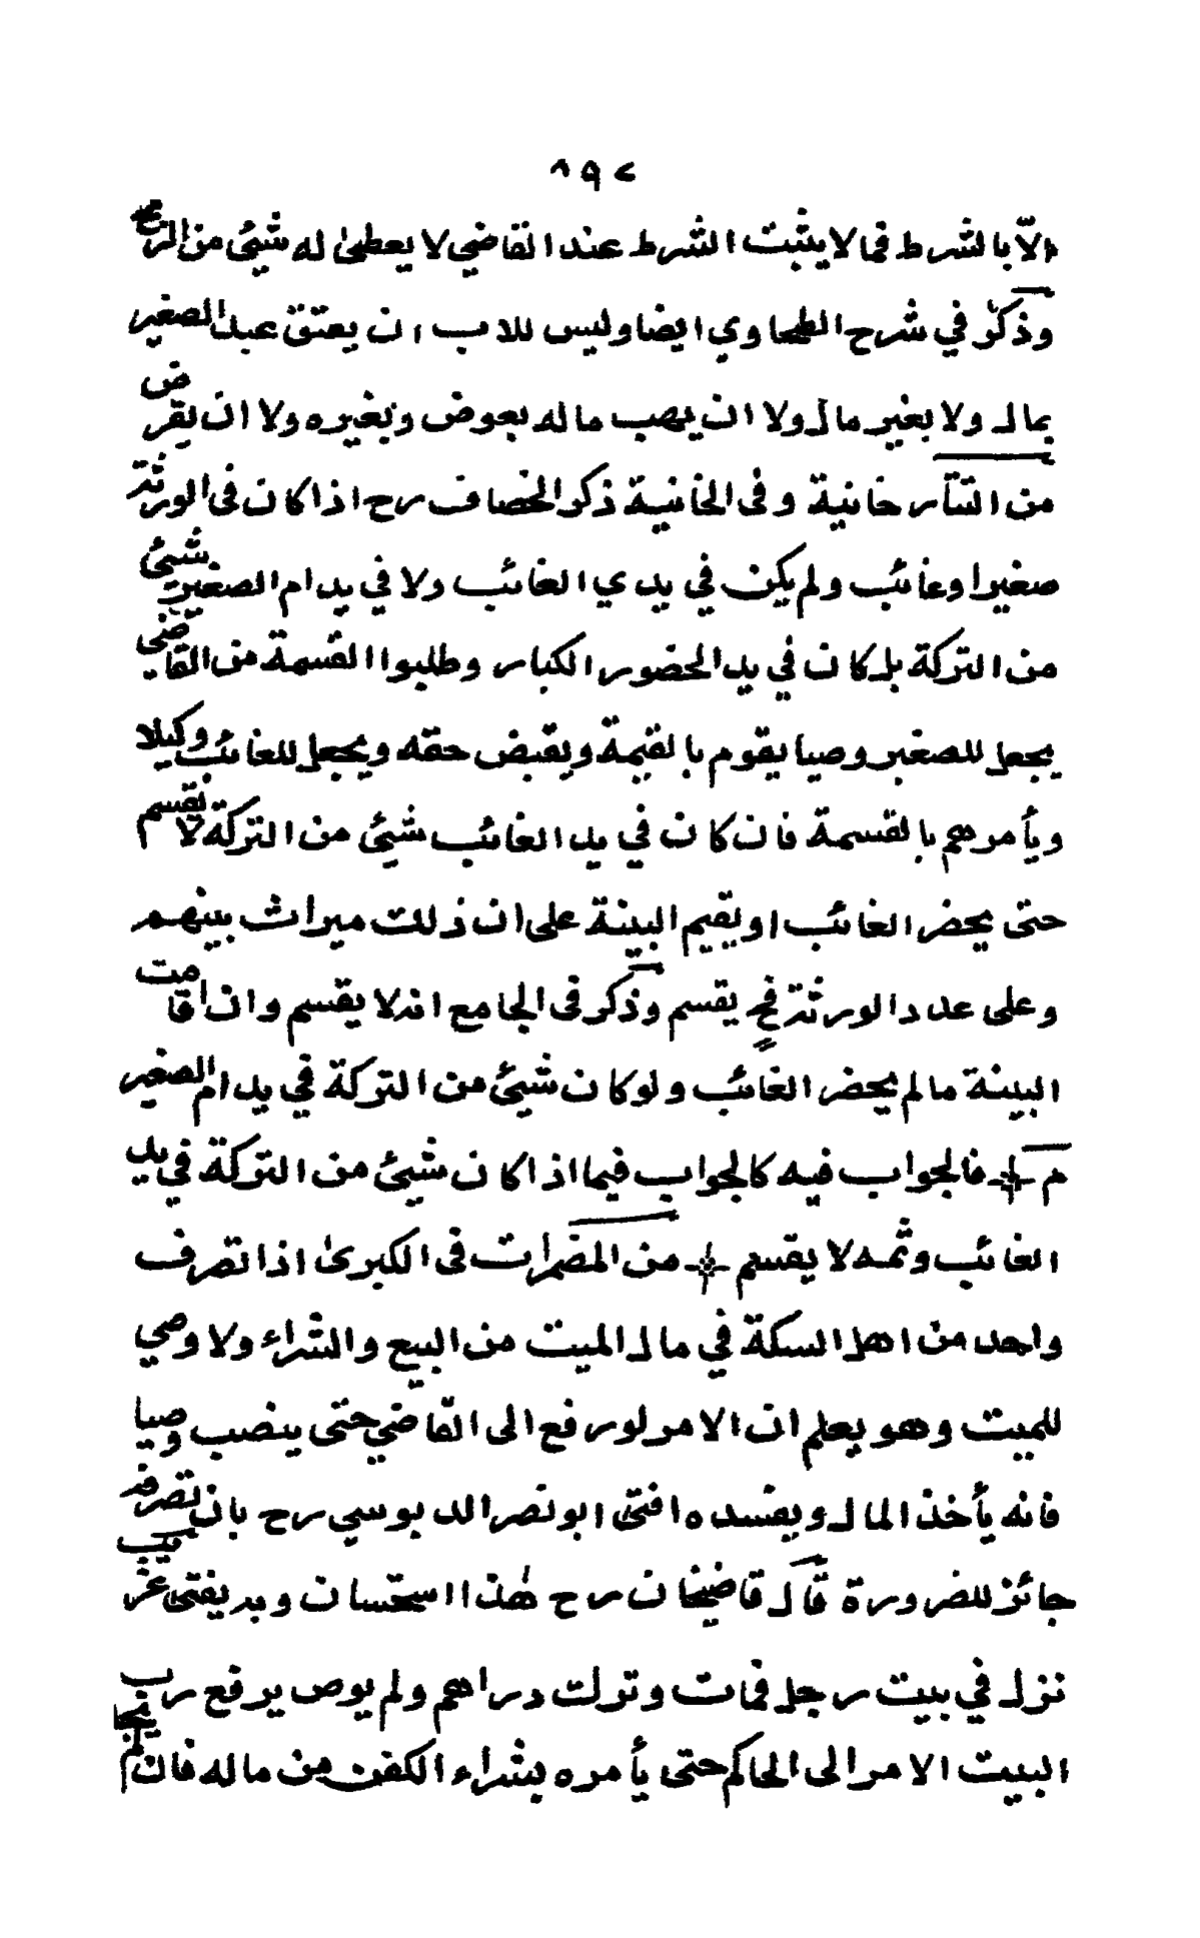 ٨٩٧
الّا بالشرط فما لا يثبت الشرط عند القاضي لا يعطى له شيئ من الربح
وذكر في شرح الطحاوي ايضا وليس للاب ان يعتق عبد الصغير
بمال ولا بغير مال ولا ان يهب ماله بعوض وبغيره ولا ان يقرض
من التتارخانية وفى الخانية ذكر الخصاف رح اذا كان فى الورثة
صغيرا وغائب ولم يكن في يدي الغائب ولا في يد ام الصغير شيئ
من التركة بل كان في يد الحضور الكبار وطلبوا القسمة من القاضي
يجعل للصغير وصيا يقوم بالقيمة ويقبض حقه ويجعل للغائب وكيلا
ويأمرهم بالقسمة فان كان في يد الغائب شيئ من التركة لا يقسم
حتى يحضر الغائب او يقيم البينة على ان ذلك ميراث بينهم
وعلى عدد الورثة فح يقسم وذكر فى الجامع انه لا يقسم وان اقامت
البينة ما لم يحضر الغائب ولو كان شيئ من التركة في يد ام الصغير
م فالجواب فيه كالجواب فيما اذا كان شيئ من التركة في يد
الغائب وثمه لا يقسم من المضمرات فى الكبرى اذا تصرف
واحد من اهل السكة في مال الميت من البيع والشراء ولا وصي
للميت وهو يعلم ان الامر لو رفع الى القاضي حتى ينصب وصيا
فانه يأخذ المال ويفسده افتى ابو نصر الدبوسي رح بان تصرفه
جائز للضرورة قال قاضيخان رح هذا استحسان وبه يفتى غريب
نزل في بيت رجل فمات وترك دراهم ولم يوص يرفع رب
البيت الامر الى الحاكم حتى يأمره بشراء الكفن من ماله فان لم